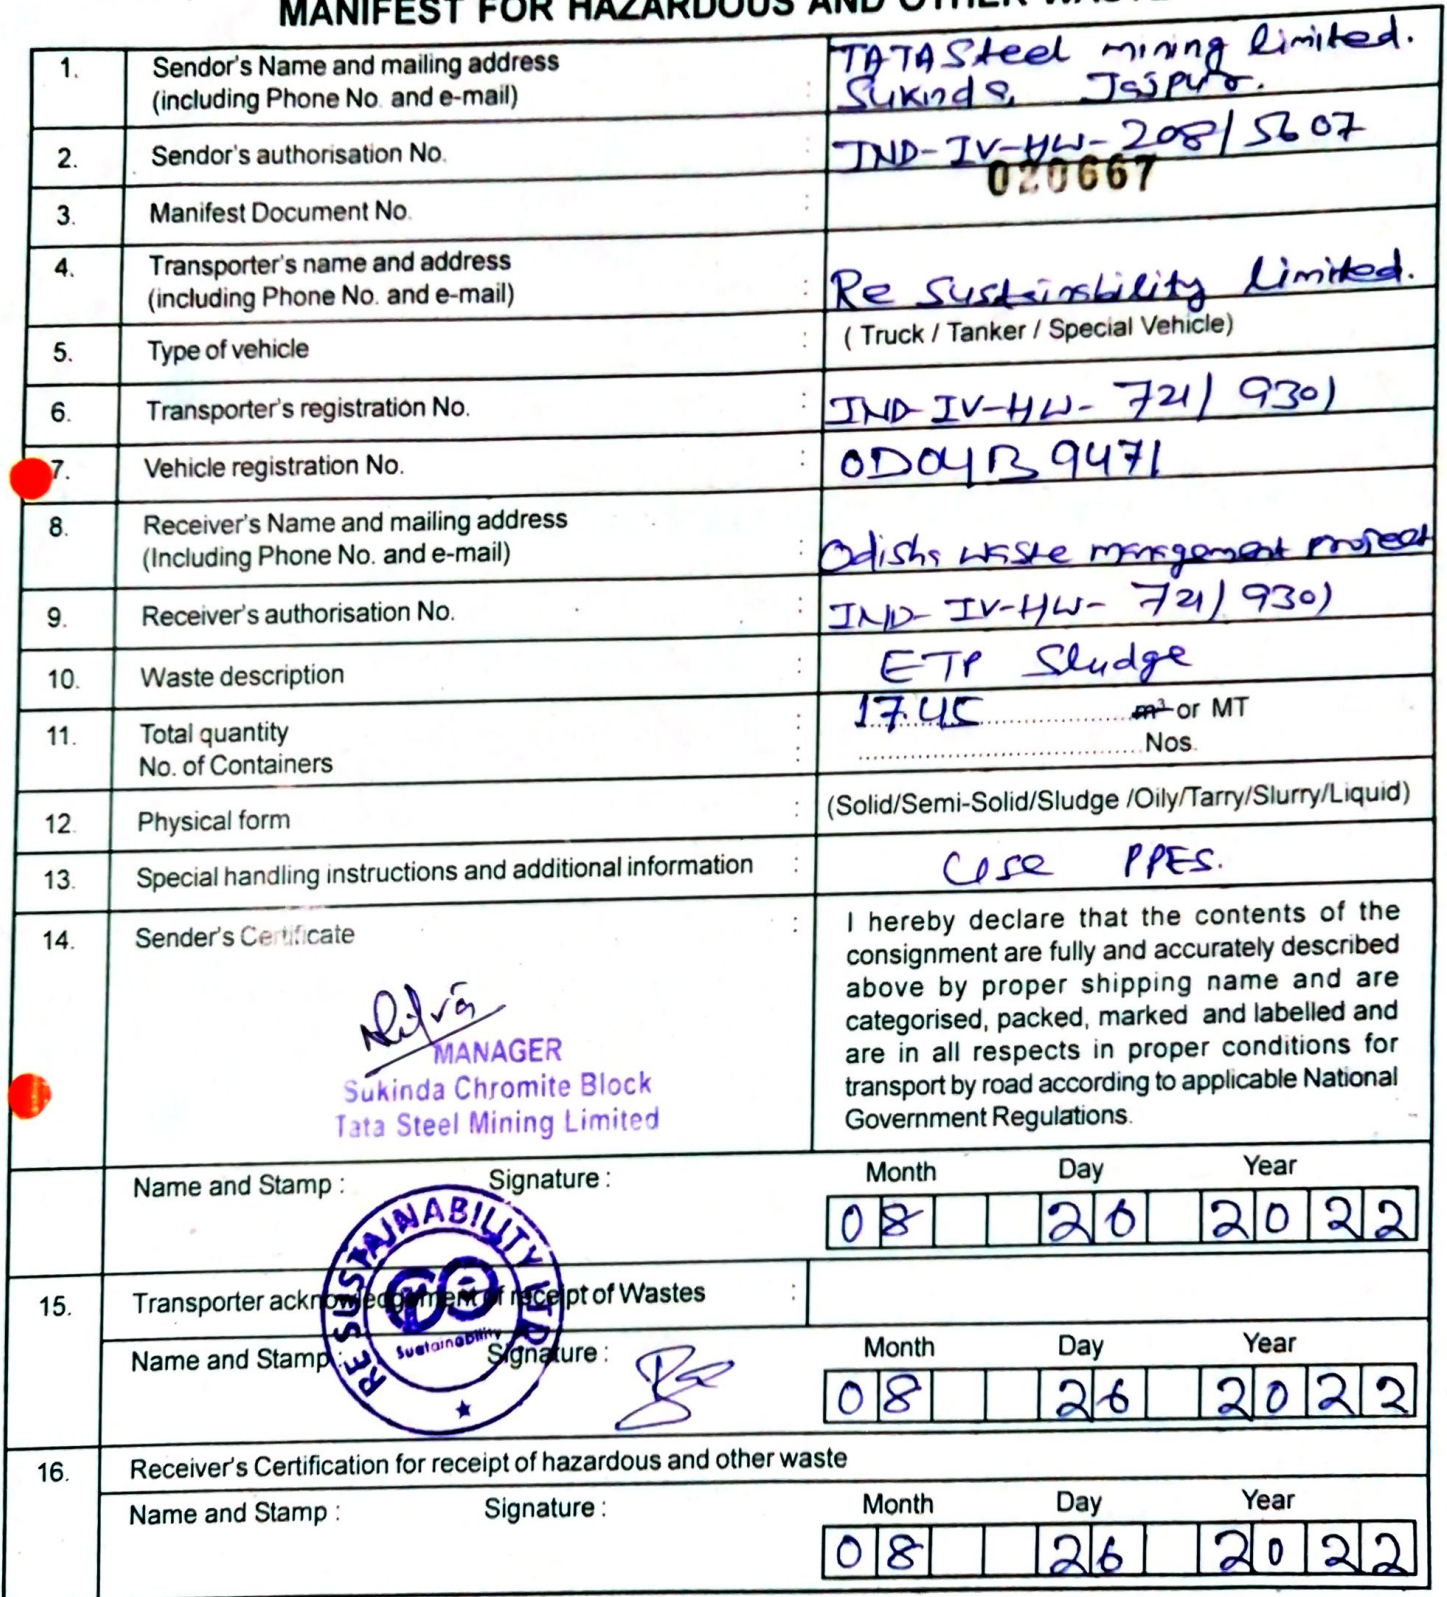 MANIFEST FOR HAZARDOUS AND OTHER WASTE
1. Sendor's Name and mailing address
(including Phone No. and e-mail) : TATA Steel mining limited.
Sukinda, Jajpur.
2. Sendor's authorisation No. IND-IV-HW-208/5607
3. Manifest Document No. : 020667
4. Transporter's name and address
(including Phone No. and e-mail) : Re Sustainability Limited.
5. Type of vehicle : ( Truck / Tanker / Special Vehicle)
6. Transporter's registration No. : IND-IV-HW-721/9301
7. Vehicle registration No. : OD04B9471
8. Receiver's Name and mailing address
(Including Phone No. and e-mail) : Odisha waste management project
9. Receiver's authorisation No. : IND-IV-HW-721/9301
10. Waste description : ETP Sludge
11. Total quantity : 17.45 m³ or MT
No. of Containers : Nos.
12. Physical form : (Solid/Semi-Solid/Sludge /Oily/Tarry/Slurry/Liquid)
13. Special handling instructions and additional information : Use PPES.
14. Sender's Certificate :
I hereby declare that the contents of the
consignment are fully and accurately described
above by proper shipping name and are
categorised, packed, marked and labelled and
are in all respects in proper conditions for
transport by road according to applicable National
Government Regulations.
MANAGER
Sukinda Chromite Block
Tata Steel Mining Limited
Name and Stamp : Signature : Month Day Year
08 26 2022
RE SUSTAINABILITY LTD
Sustainability
15. Transporter acknowledgement of receipt of Wastes :
Name and Stamp : Signature : Month Day Year
08 26 2022
16. Receiver's Certification for receipt of hazardous and other waste
Name and Stamp : Signature : Month Day Year
08 26 2022